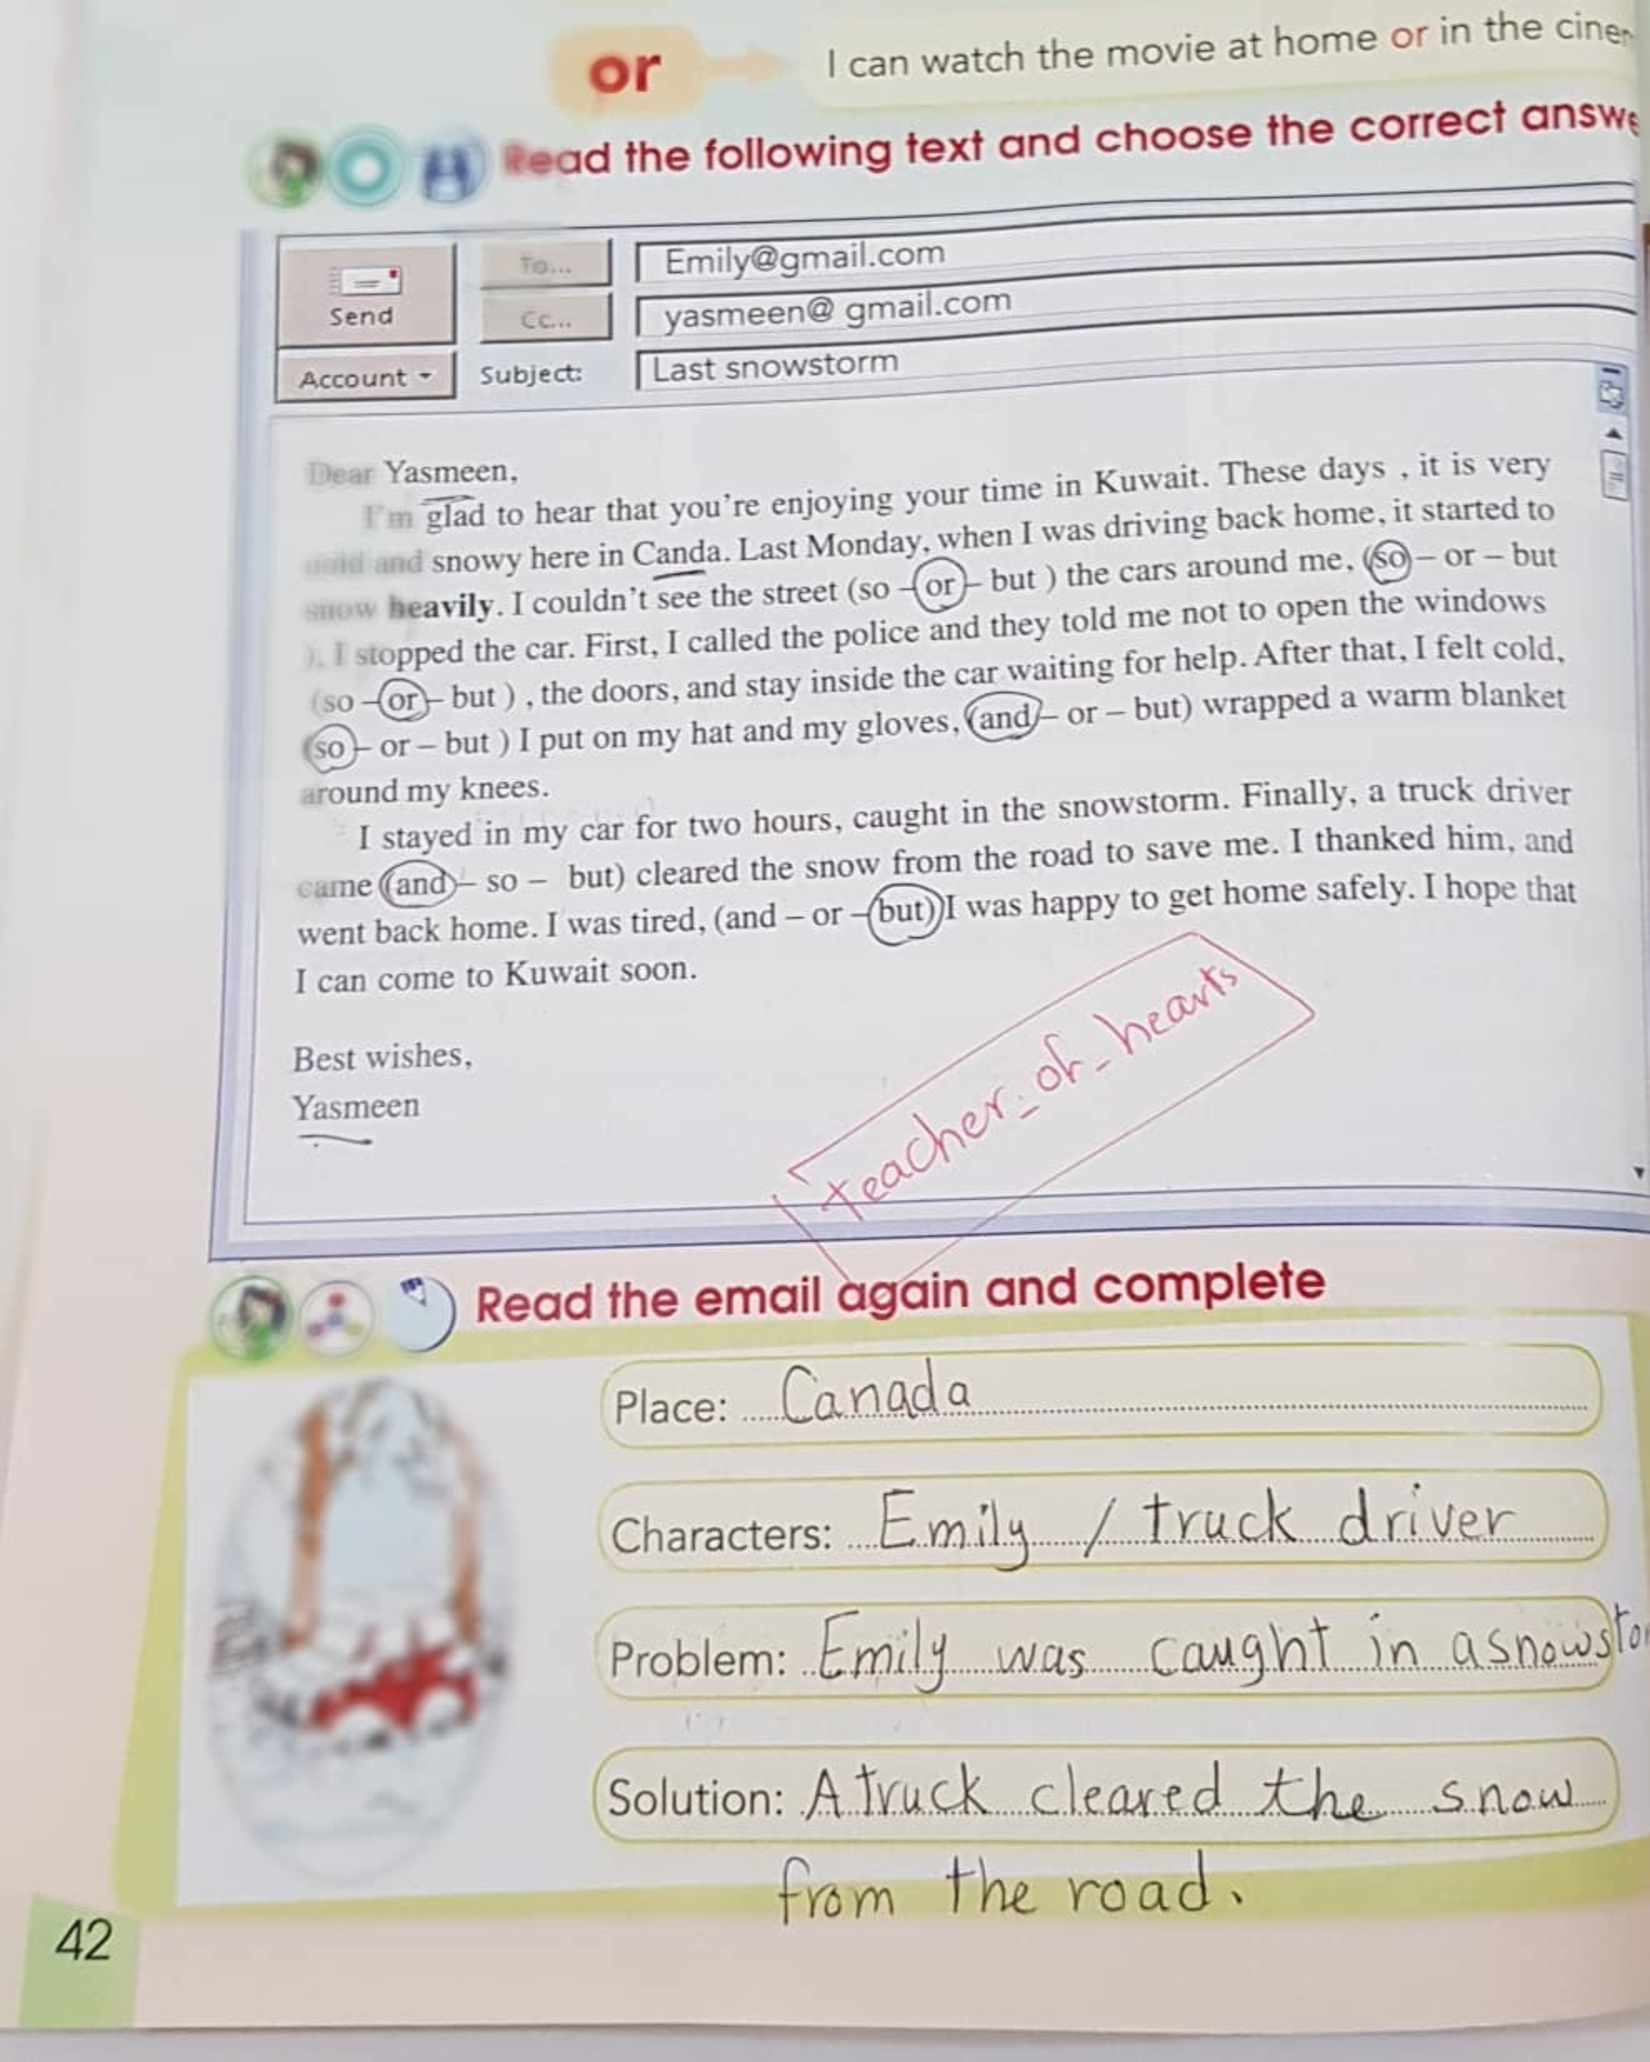 or
I can watch the movie at home or in the
Read the following text and choose the correct
To...
Emily@gmail.com
Send
Cc...
yasmeen@ gmail.com
Account
Subject:
Last snowstorm
Dear Yasmeen,
I'm glad to hear that you're enjoying your time in Kuwait. These days , it is very
and snowy here in Canda. Last Monday, when I was driving back home, it started to
snow heavily. I couldn't see the street (so – or – but ) the cars around me, (so – or – but
). I stopped the car. First, I called the police and they told me not to open the windows
(so – or – but ) , the doors, and stay inside the car waiting for help. After that, I felt cold,
(so – or – but ) I put on my hat and my gloves, (and – or – but) wrapped a warm blanket
around my knees.
I stayed in my car for two hours, caught in the snowstorm. Finally, a truck driver
came (and – so – but) cleared the snow from the road to save me. I thanked him, and
went back home. I was tired, (and – or – but) I was happy to get home safely. I hope that
I can come to Kuwait soon.
Best wishes,
Yasmeen
teacher_of_hearts
Read the email again and complete
Place: Canada
Characters: Emily / truck driver
Problem: Emily was caught in a
Solution: A truck cleared the snow
from the road.
42